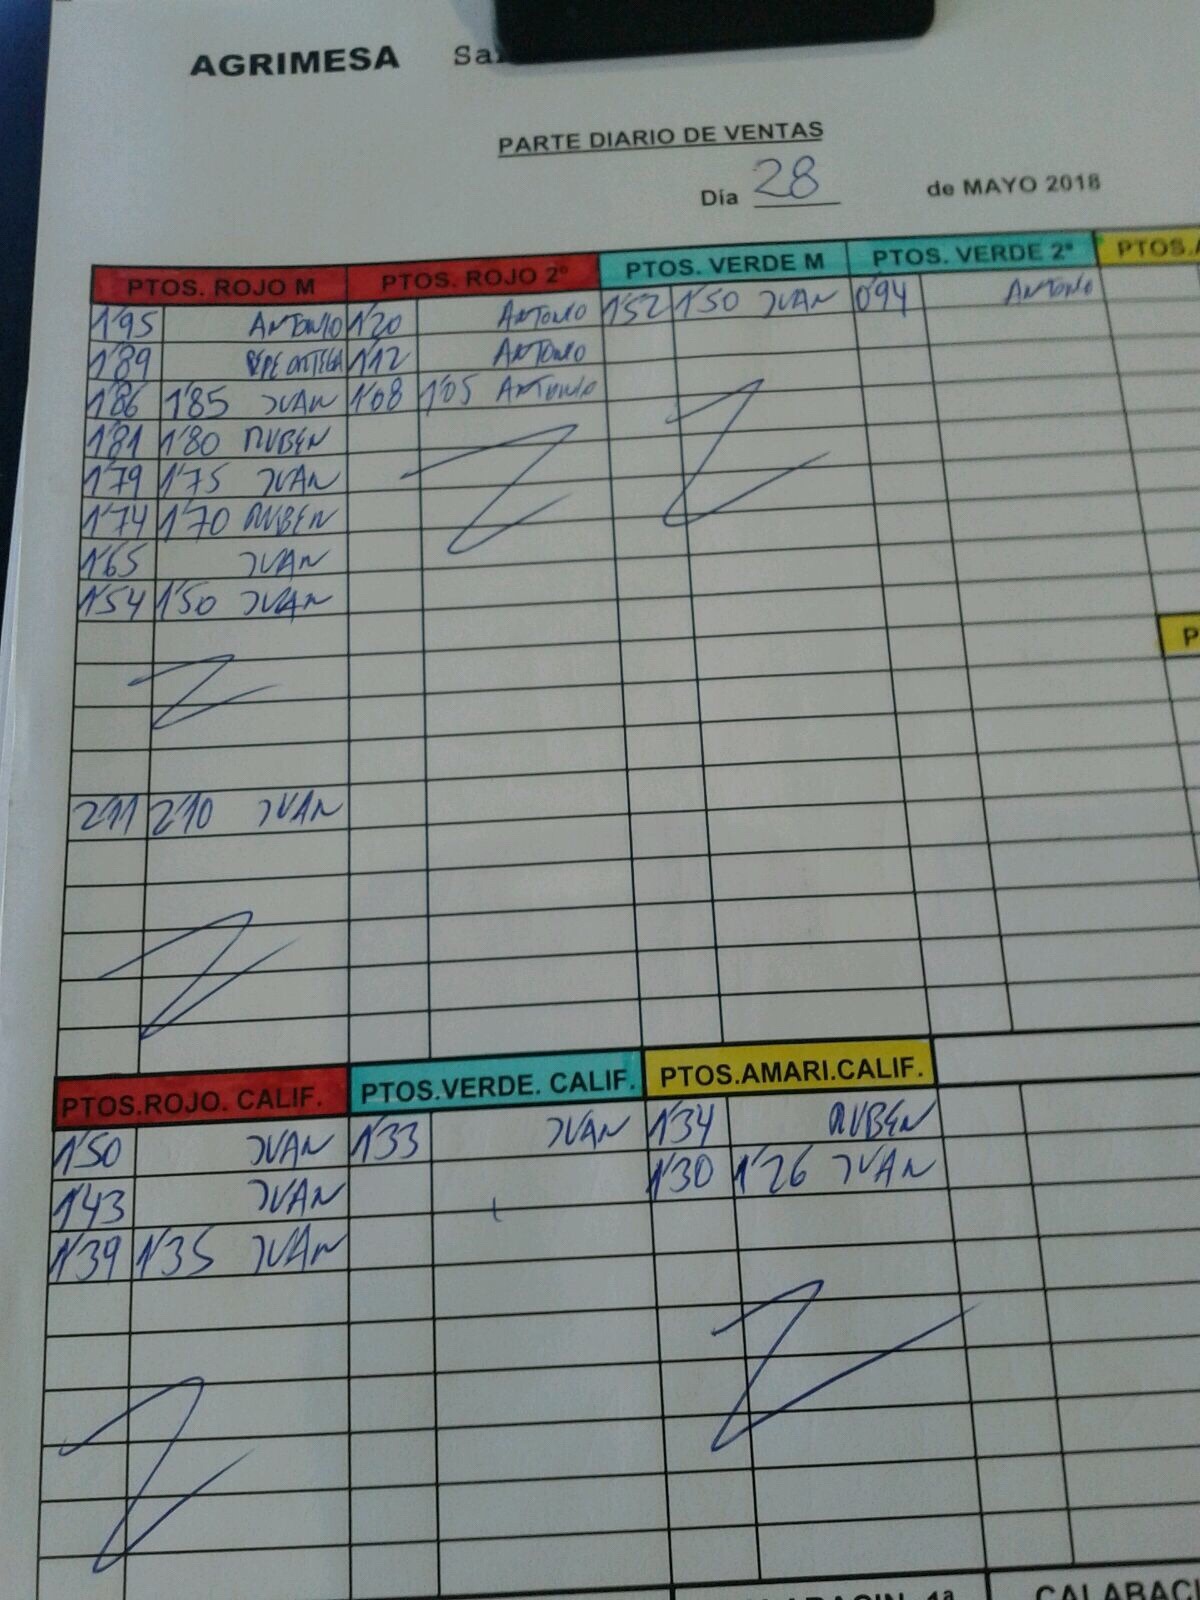 AGRIMESA
PARTE DIARIO DE VENTAS
Día 28 de MAYO 2018
PTOS. ROJO M PTOS. ROJO 2º PTOS. VERDE M PTOS. VERDE 2ª PTOS.A
1'95 ANTONIO 1'20 ANTONIO 1'52 1'50 JUAN 0'94 ANTONIO
1'89 PEPE ORTEGA 1'12 ANTONIO
1'86 1'85 JUAN 1'08 1'05 ANTONIO
1'81 1'80 RUBEN
1'79 1'75 JUAN
1'74 1'70 RUBEN
1'65 JUAN
1'54 1'50 JUAN
P
2'11 2'10 JUAN
PTOS.ROJO. CALIF. PTOS.VERDE. CALIF. PTOS.AMARI.CALIF.
1'50 JUAN 1'33 JUAN 1'34 RUBEN
1'43 JUAN 1'30 1'26 JUAN
1'39 1'35 JUAN
CALABACI